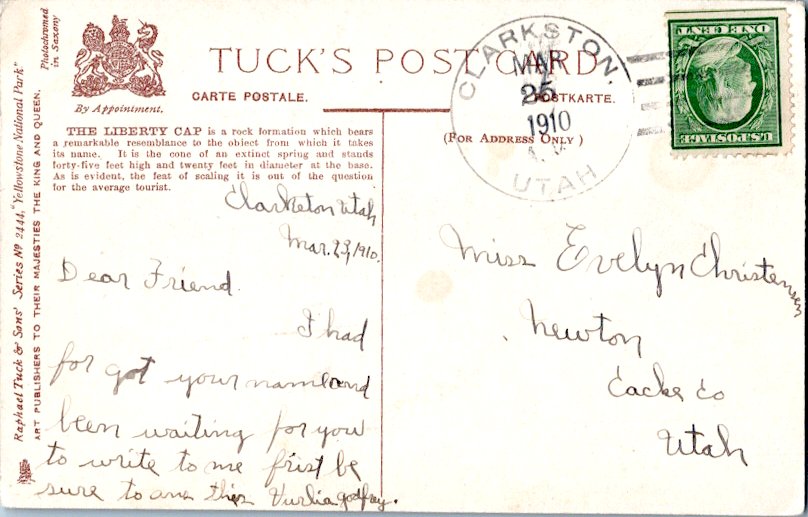 Photochromed
in Saxony
By Appointment.
TUCK'S POST CARD.
CARTE POSTALE.
POSTKARTE.
(For Address Only)
CLARKSTON
MAR
25
1910
UTAH
U.S. POSTAGE
ONE CENT
Raphael Tuck & Sons' Series Nº 2444, "Yellowstone National Park"
ART PUBLISHERS TO THEIR MAJESTIES THE KING AND QUEEN.
THE LIBERTY CAP is a rock formation which bears
a remarkable resemblance to the object from which it takes
its name. It is the cone of an extinct spring and stands
forty-five feet high and twenty feet in diameter at the base.
As is evident, the feat of scaling it is out of the question
for the average tourist.
Clarkston Utah
Mar. 23, 1910.
Dear Friend.
I had
for got your name and
been waiting for you
to write to me frist be
sure to ans this Vurlia godfrey.
Miss Evelyn Christensen
Newton
Cache Co
Utah